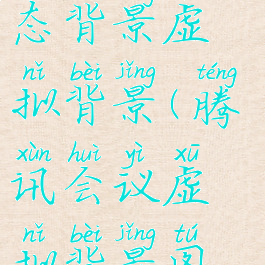 态背景虚
nǐ bèi jǐng téng
拟背景(腾
xùn huì yì xū
讯会议虚
nǐ bèi jǐng tú
拟背景图